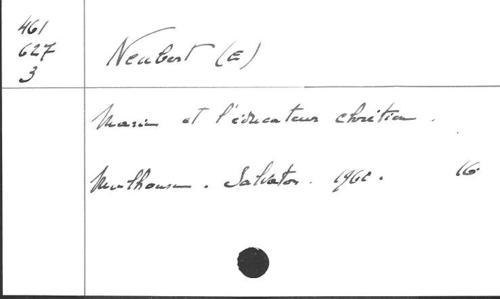 461
627
3
Neubert (E)
Marie et l'éducateur chrétien.
Mulhouse. Salvator. 196 . 16